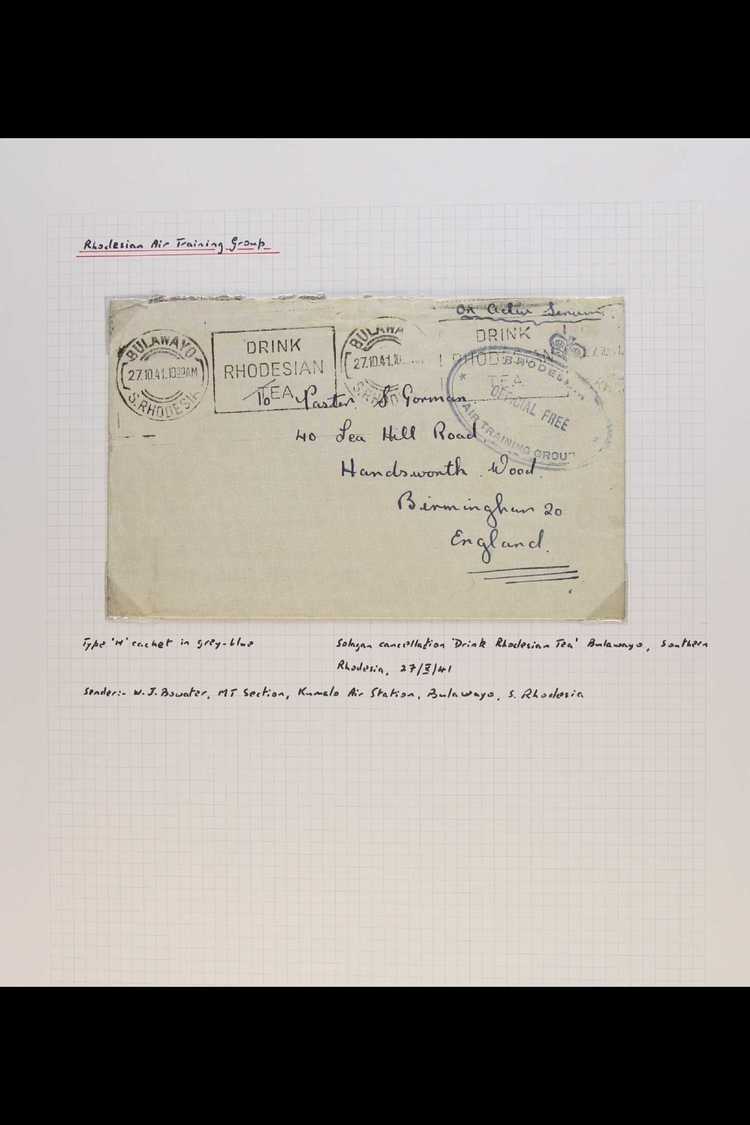 Rhodesian Air Training Group
On Active Service
BULAWAYO
27.10.41.10
S. RHODESIA
DRINK
RHODESIAN
TEA
BULAWA
27.10.41.10
S. RHO
DRINK
RHOD
TEA
RHODESIAN
OFFICIAL FREE
AIR TRAINING GROUP
To Pastor S Gorman
40 Lea Hill Road
Handsworth Wood.
Birmingham 20
England.
Type 'H' cachet in grey-blue
Sologan cancellation 'Drink Rhodesian Tea' Bulawayo, Southern
Rhodesia, 27/X/41
Sender:- W.J. Bowater, MT Section, Kumalo Air Station, Bulawayo, S. Rhodesia